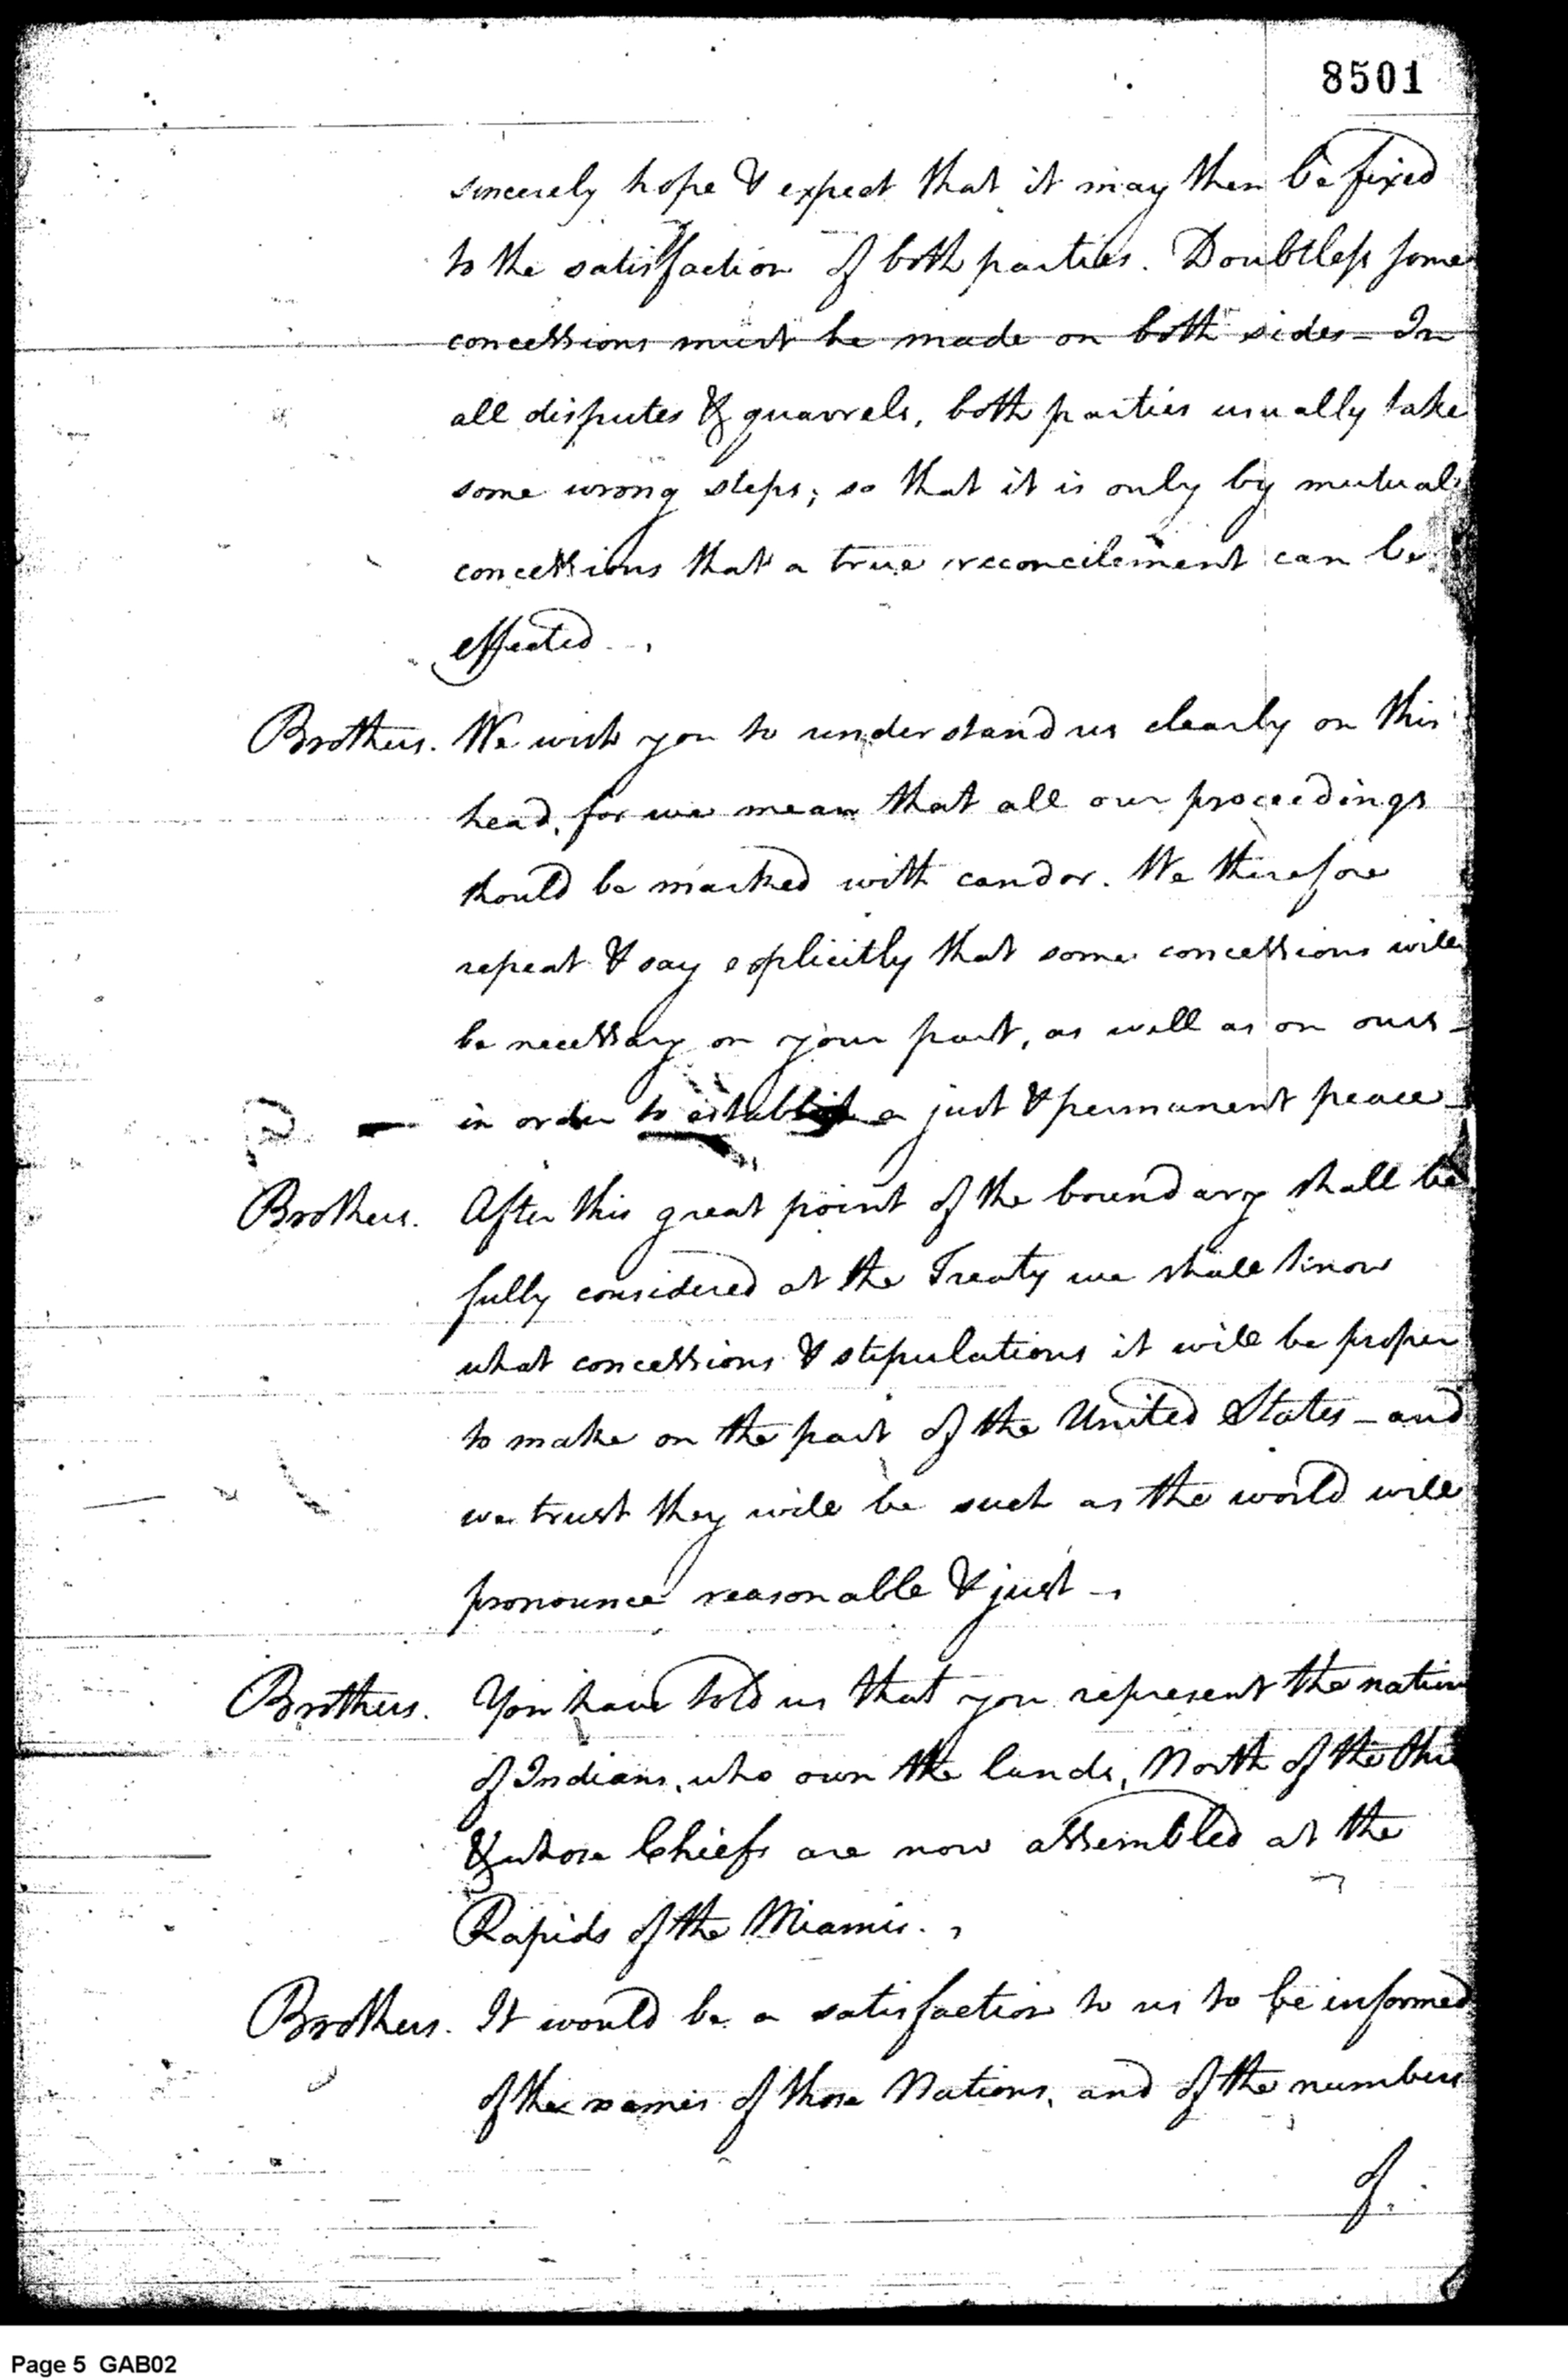 8501
sincerely hope & expect that it may then be fixed
to the satisfaction of both parties. Doubtless some
concessions must be made on both sides – In
all disputes & quarrels, both parties usually take
some wrong steps; so that it is only by mutual
concessions that a true reconcilement can be
effected.
Brothers. We wish you to understand us clearly on this
head, for we mean that all our proceedings
should be marked with candor. We therefore
repeat & say explicitly that some concessions will
be necessary on your part, as well as on ours –
in order to establish a just & permanent peace –
Brothers. After this great point of the boundary shall be
fully considered at the Treaty we shall know
what concessions & stipulations it will be proper
to make on the part of the United States – and
we trust they will be such as the world will
pronounce reasonable & just –
Brothers. You have told us that you represent the nation
of Indians, who own the lands, North of the Ohio
& whose Chiefs are now assembled at the
Rapids of the Miamis.
Brothers. It would be a satisfaction to us to be informed
of the names of those Nations, and of the numbers
of.
Page 5 GAB02